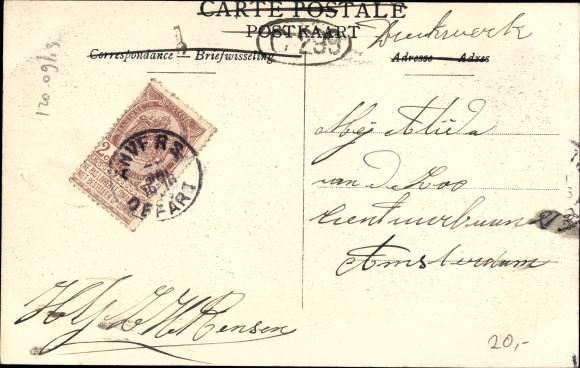 CARTE POSTALE
POSTKAART
Drukwerk
Correspondance — Briefwisseling
Adresse — Adres
120.09/13
2
ANVERS
DEPART
Mej Alida
van de Loo
Ceintuurbaan 213
Amsterdam
Rensen
20,-